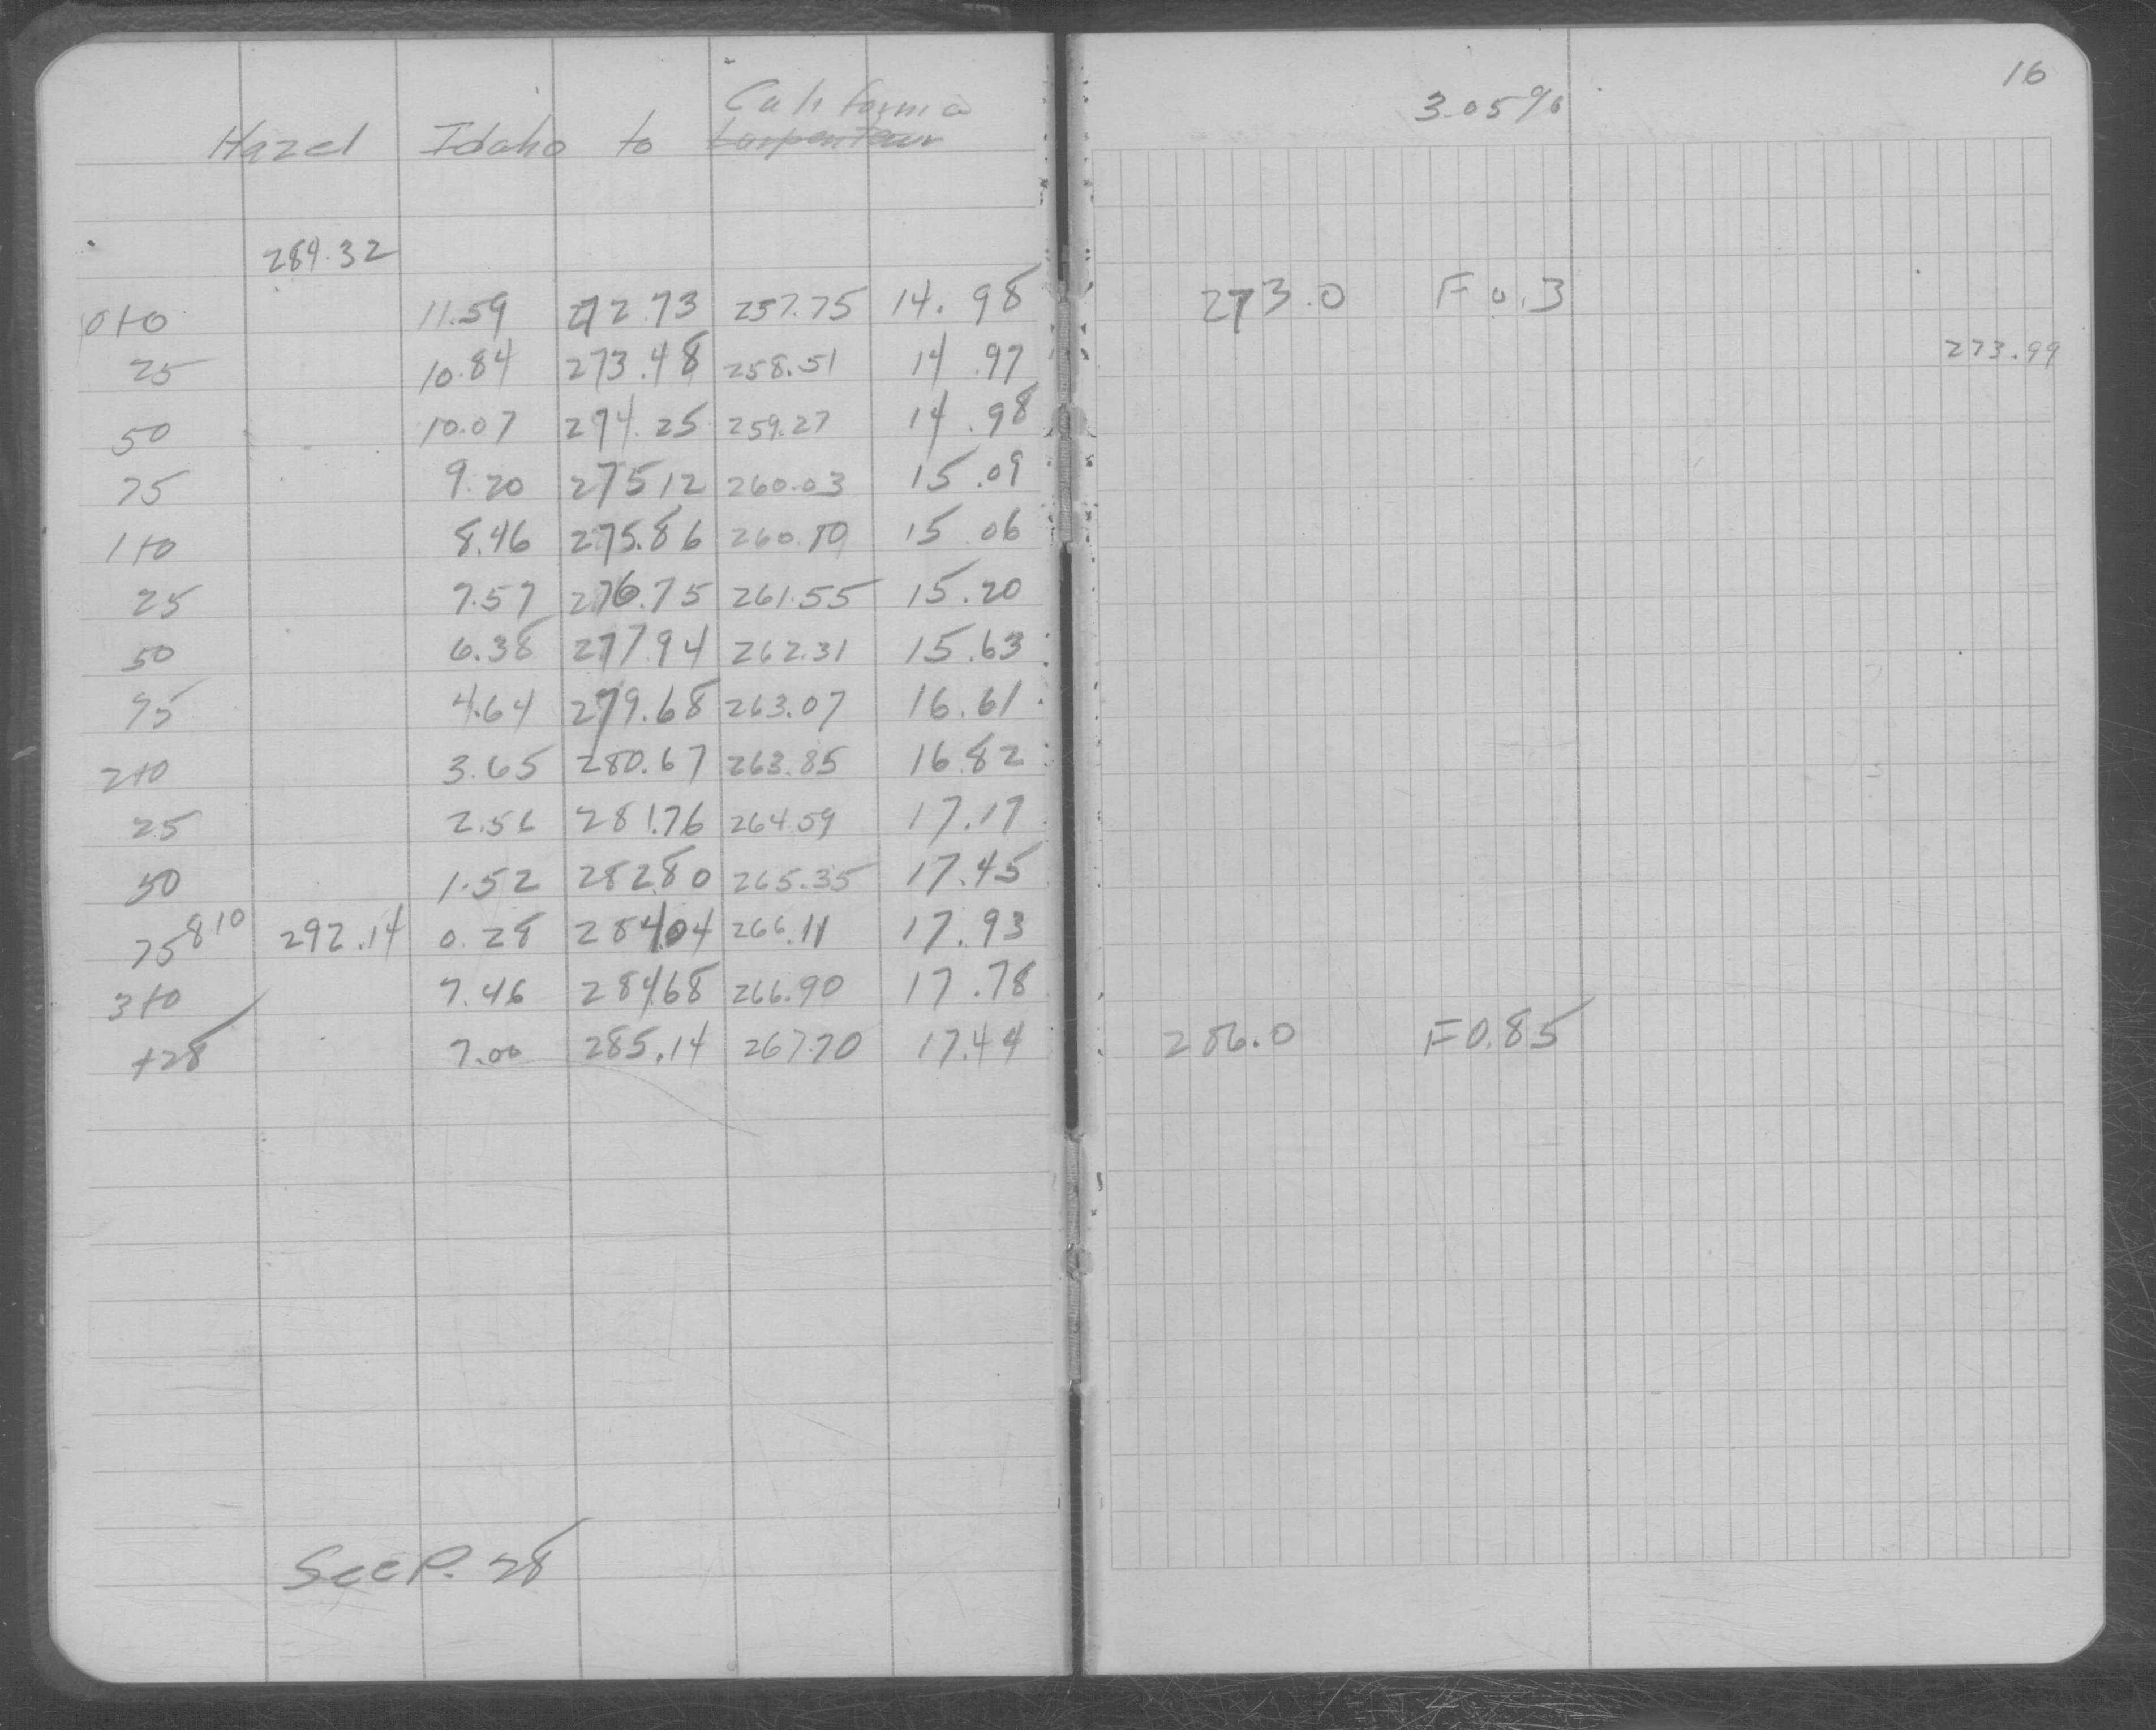 16
California
Hazel Idaho to Larpenteur
3.05%
284.32
0+0 11.59 272.73 257.75 14.98 273.0 F 0.3
25 10.84 273.48 258.51 14.97 273.99
50 10.07 274.25 259.27 14.98
75 9.20 275.12 260.03 15.09
1+0 8.46 275.86 260.80 15.06
25 7.57 276.75 261.55 15.20
50 6.38 277.94 262.31 15.63
75 4.64 279.68 263.07 16.61
2+0 3.65 280.67 263.85 16.82
25 2.56 281.76 264.59 17.17
50 1.52 282.80 265.35 17.45
75 8.10 292.14 0.28 284.04 266.11 17.93
3+0 7.46 284.68 266.90 17.78
+28 7.00 285.14 267.70 17.44 286.0 F 0.85
See P. 28